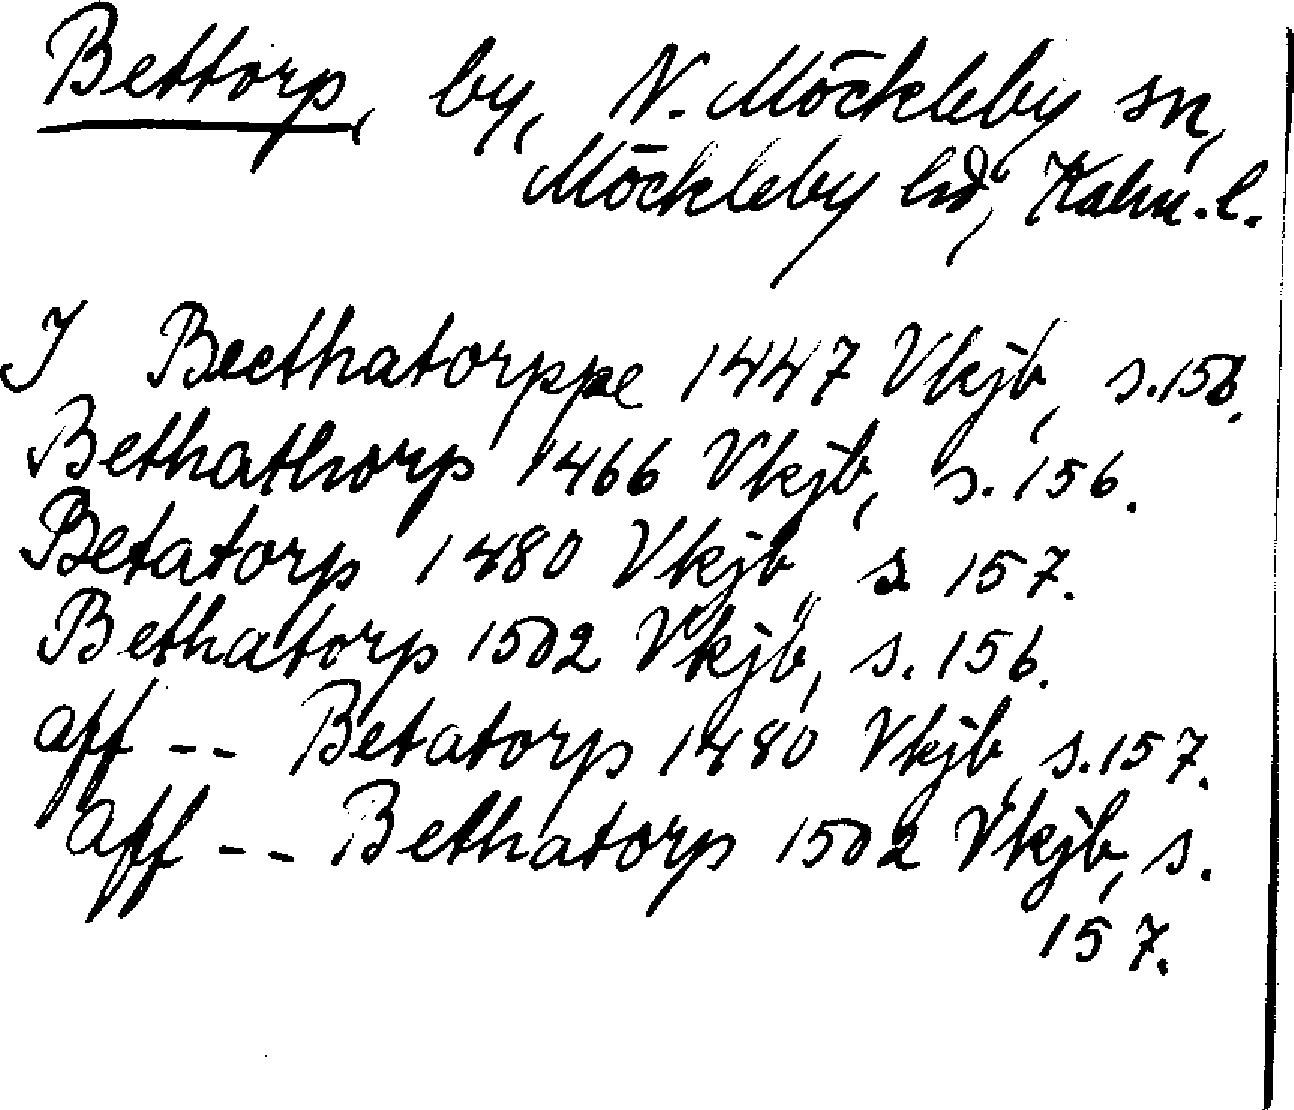 Bettorp, by, N. Möckleby sn,
Möckleby hd, Kalm. l.
I Beethatorppe 1447 Vkjb, s. 156.
Bethathorp 1466 Vkjb, s. 156.
Betatorp 1480 Vkjb, s. 157.
Bethatorp 1502 Vkjb, s. 156.
aff -- Betatorp 1480 Vkjb, s. 157.
aff -- Bethatorp 1502 Vkjb, s.
157.